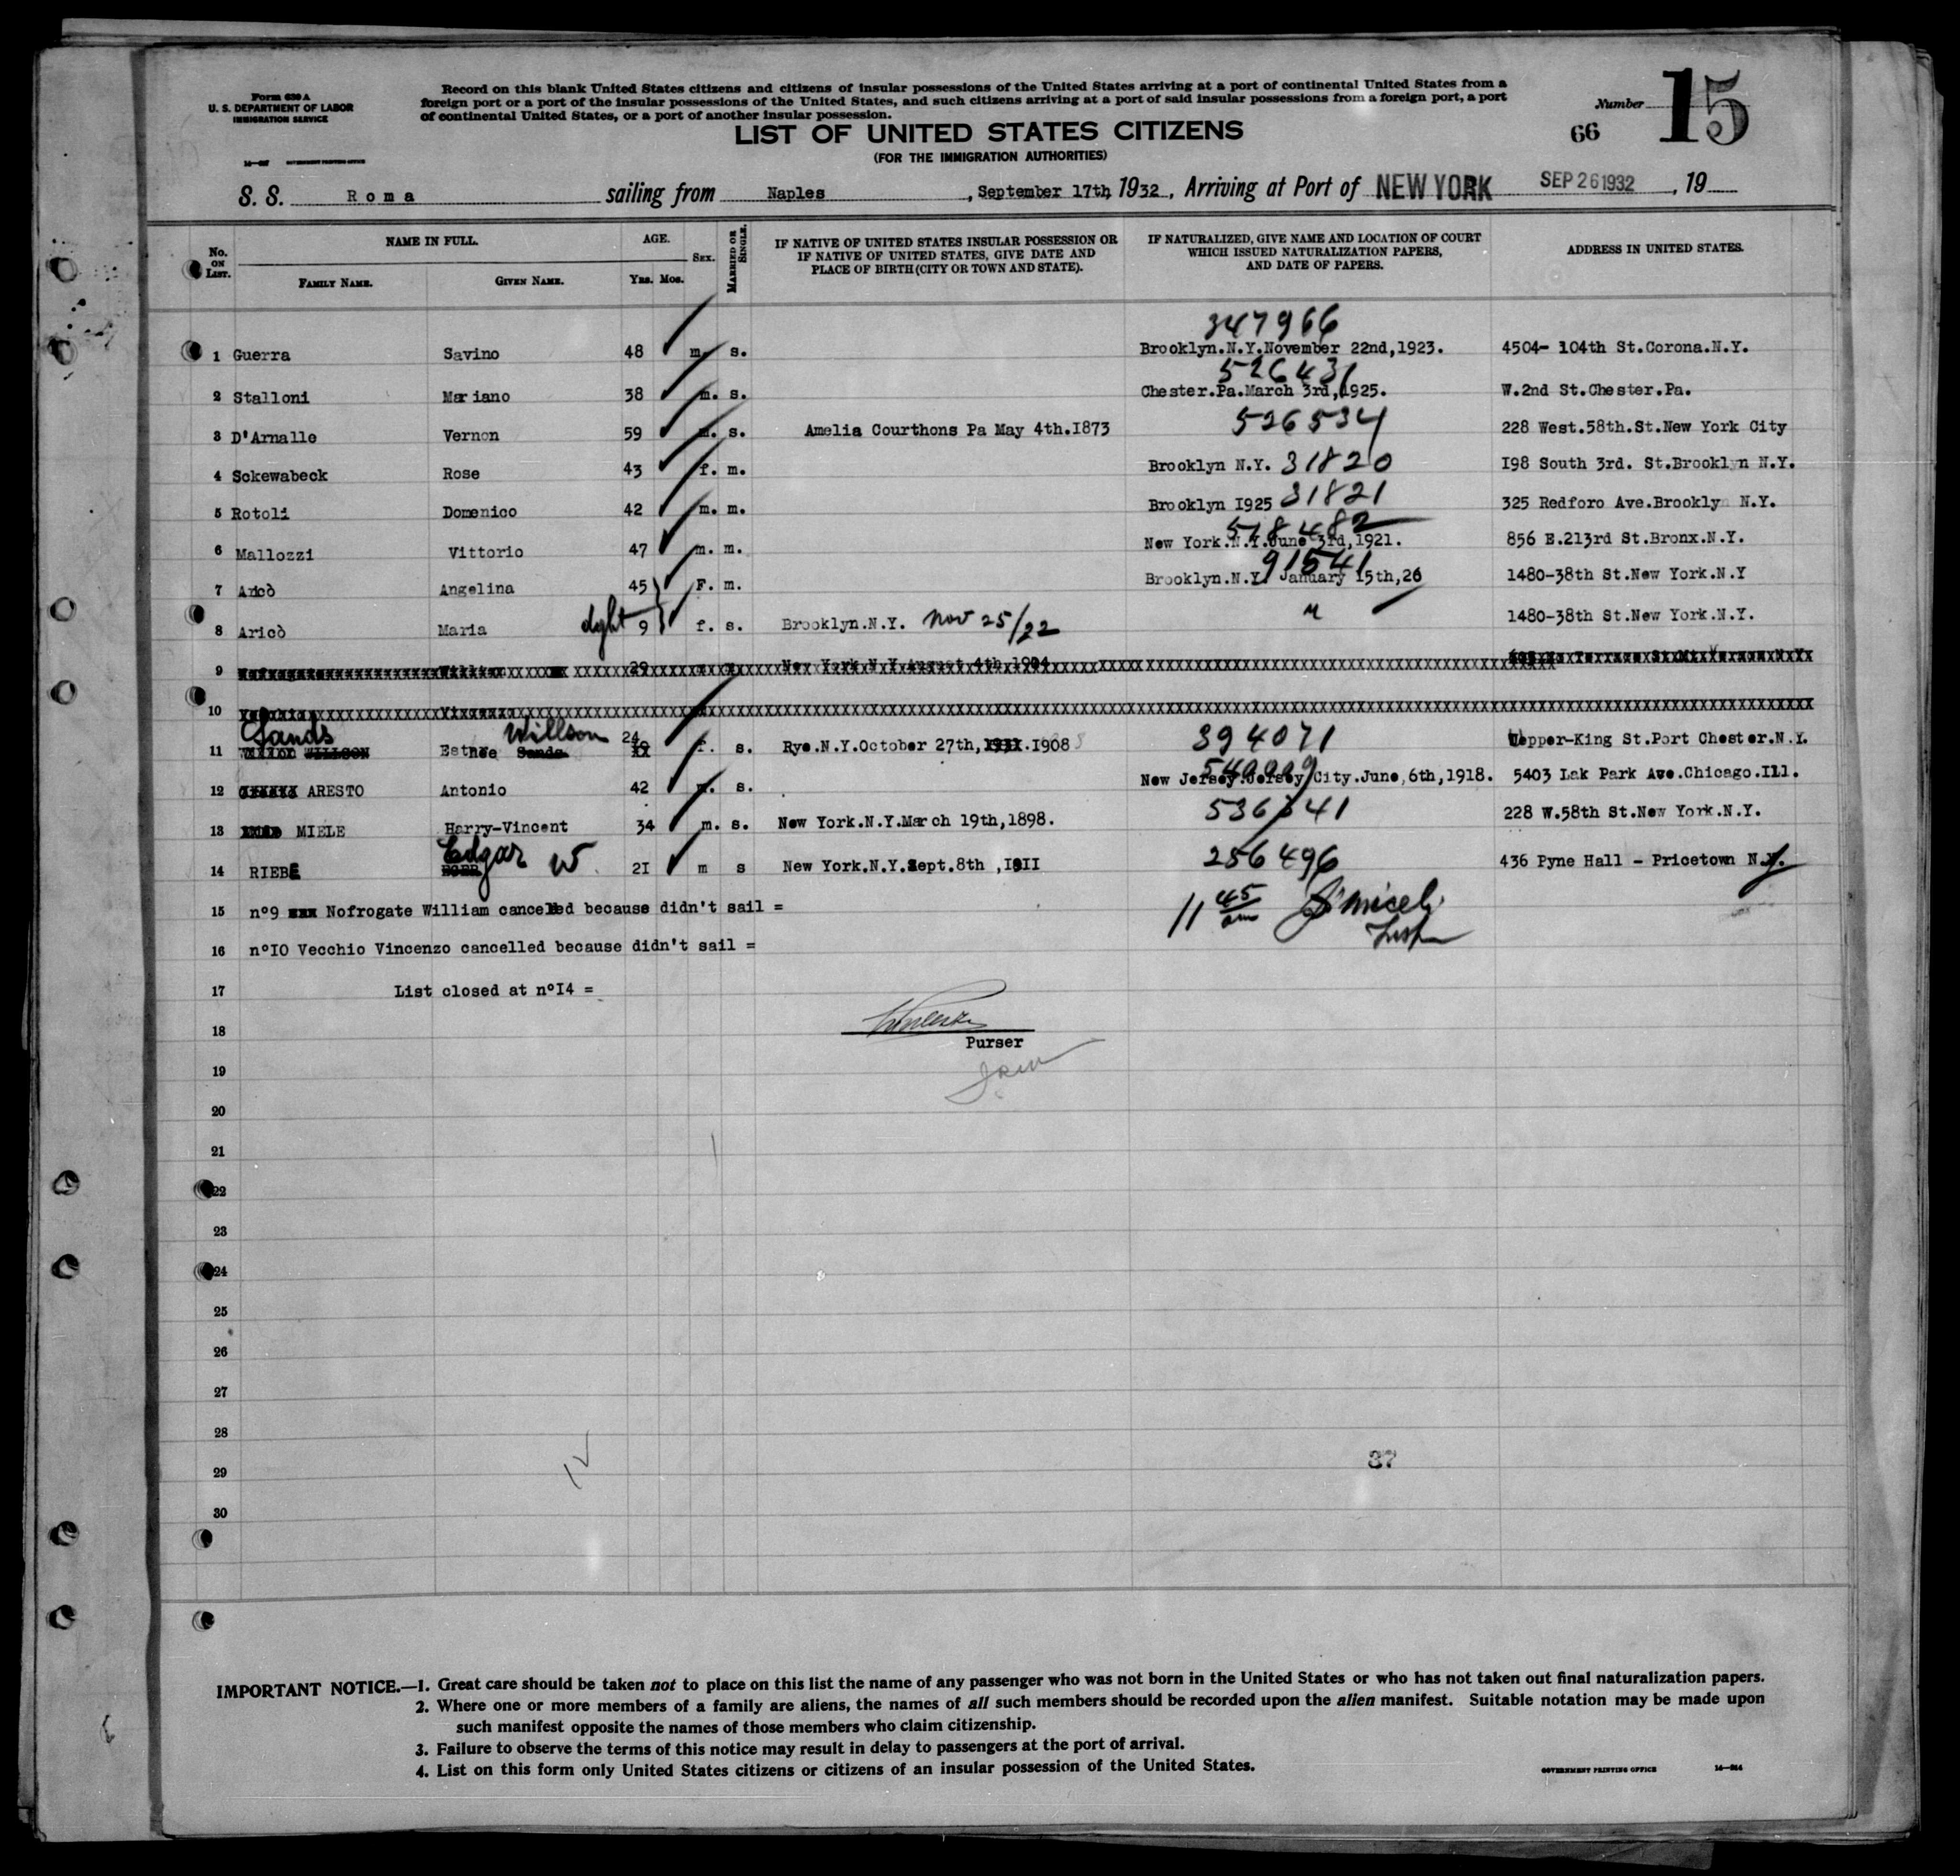 Form 630 A
U. S. DEPARTMENT OF LABOR
IMMIGRATION SERVICE
Record on this blank United States citizens and citizens of insular possessions of the United States arriving at a port of continental United States from a
foreign port or a port of the insular possessions of the United States, and such citizens arriving at a port of said insular possessions from a foreign port, a port
of continental United States, or a port of another insular possession.
Number 15
66
LIST OF UNITED STATES CITIZENS
(FOR THE IMMIGRATION AUTHORITIES)
S. S. Roma sailing from Naples, September 17th, 1932, Arriving at Port of NEW YORK SEP 26 1932, 19
No. ON LIST. NAME IN FULL. FAMILY NAME. GIVEN NAME. AGE. YRS. MOS. SEX. MARRIED OR SINGLE. IF NATIVE OF UNITED STATES INSULAR POSSESSION OR IF NATIVE OF UNITED STATES, GIVE DATE AND PLACE OF BIRTH (CITY OR TOWN AND STATE). IF NATURALIZED, GIVE NAME AND LOCATION OF COURT WHICH ISSUED NATURALIZATION PAPERS, AND DATE OF PAPERS. ADDRESS IN UNITED STATES.
347966
1 Guerra Savino 48 m. s. Brooklyn.N.Y.November 22nd,1923. 4504- 104th St.Corona.N.Y.
526431
2 Stalloni Mariano 38 m. s. Chester.Pa.March 3rd,1925. W.2nd St.Chester.Pa.
3 D'Arnalle Vernon 59 m. s. Amelia Courthons Pa May 4th.I873 526534 228 West.58th.St.New York City
4 Sckewabeck Rose 43 f. m. Brooklyn N.Y. 31820 I98 South 3rd. St.Brooklyn N.Y.
5 Rotoli Domenico 42 m. m. Brooklyn I925 31821 325 Redforo Ave.Brooklyn N.Y.
518482
6 Mallozzi Vittorio 47 m. m. New York.N.Y.June 3rd,1921. 856 E.213rd St.Bronx.N.Y.
91541
7 Aricò Angelina 45 F. m. Brooklyn.N.Y. January 15th,26 1480-38th St.New York.N.Y
8 Aricò Maria dght 9 f. s. Brooklyn.N.Y. Nov 25/22 " 1480-38th St.New York.N.Y.
9 William 29 New York N.Y August 4th 1904
10
Sands Willson
11 WILLSON Esther nee Sands 24 f. s. Rye.N.Y.October 27th, .1908 394071 Uepper-King St.Port Chester.N.Y.
12 ARESTO Antonio 42 m. s. New Jersey.Jersey City.June,6th,1918. 5403 Lak Park Ave.Chicago.Ill.
13 MIELE Harry-Vincent 34 m. s. New York.N.Y.March 19th,1898. 228 W.58th St.New York.N.Y.
Edgar W.
14 RIEBE 2I m s New York.N.Y.Sept.8th ,I9II 256496 436 Pyne Hall - Pricetown N.J.
15 n°9 Nofrogate William cancelled because didn't sail =
11 45 am
16 n°IO Vecchio Vincenzo cancelled because didn't sail =
17 List closed at n°I4 =
18
Purser
19
20
21
22
23
24
25
26
27
28
29 37
30
IMPORTANT NOTICE.—1. Great care should be taken not to place on this list the name of any passenger who was not born in the United States or who has not taken out final naturalization papers.
2. Where one or more members of a family are aliens, the names of all such members should be recorded upon the alien manifest. Suitable notation may be made upon
such manifest opposite the names of those members who claim citizenship.
3. Failure to observe the terms of this notice may result in delay to passengers at the port of arrival.
4. List on this form only United States citizens or citizens of an insular possession of the United States.
GOVERNMENT PRINTING OFFICE